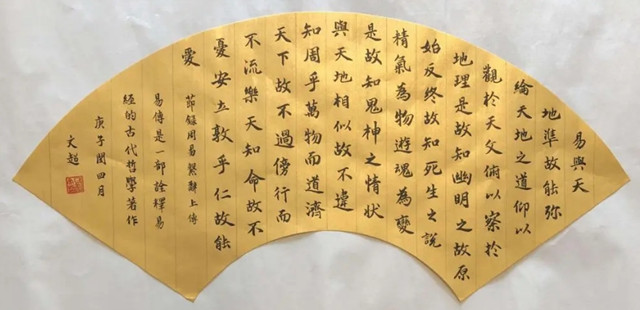 易與天
地準故能弥
綸天地之道仰以
觀於天文俯以察於
地理是故知幽明之故原
始反終故知死生之說
精氣為物遊魂為變
是故知鬼神之情狀
與天地相似故不違
知周乎萬物而道濟
天下故不過傍行而
不流樂天知命故不
憂安土敦乎仁故能
愛
節錄周易繫辭上傳
易傳是一部詮釋易
經的古代哲學著作
庚子閏四月
文超